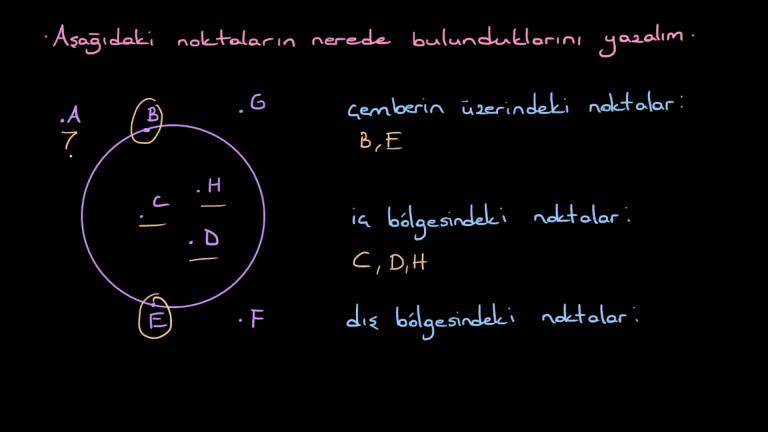 · Aşağıdaki noktaların nerede bulunduklarını yazalım.
.A
B
.G
?
çemberin üzerindeki noktalar:
B,E
.C
.H
.D
iç bölgesindeki noktalar:
C, D,H
E
.F
dış bölgesindeki noktalar: